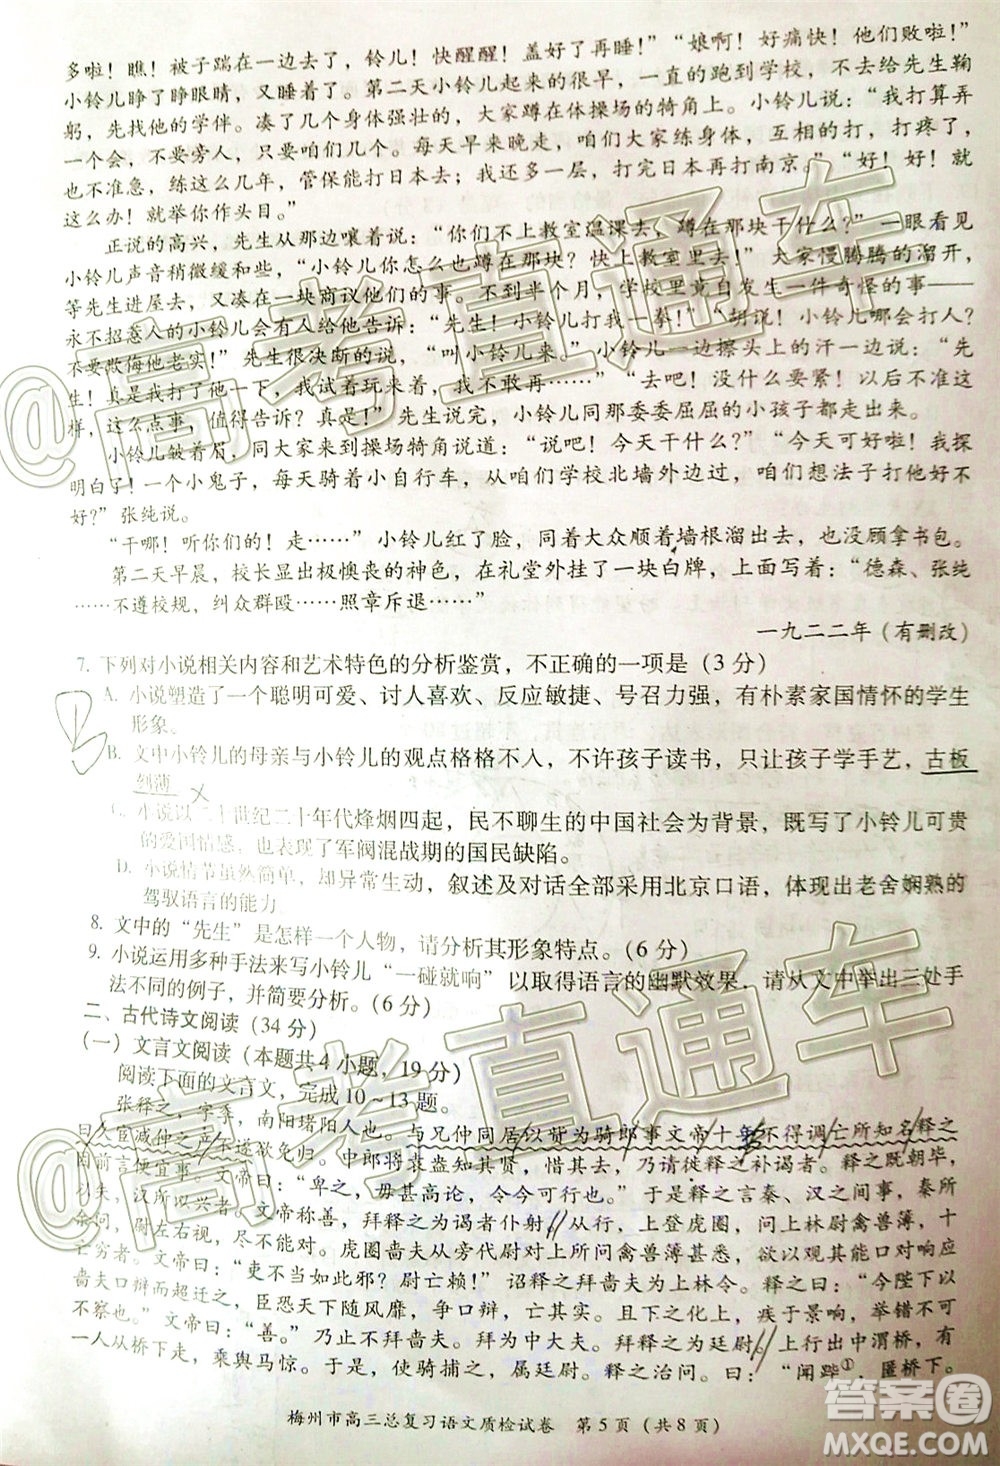 多啦！瞧！被子踹在一边去了，铃儿！快醒醒！盖好了再睡！”“娘啊！好痛快！他们败啦！”
小铃儿睁了睁眼睛，又睡着了。第二天小铃儿起来的很早，一直的跑到学校，不去给先生鞠
躬，先找他的学伴。凑了几个身体强壮的，大家蹲在体操场的犄角上。小铃儿说：“我打算弄
一个会，不要旁人，只要咱们几个。每天早来晚走，咱们大家练身体，互相的打，打疼了，
也不准急，练这么几年，管保能打日本去；我还多一层，打完日本再打南京。”“好！好！就
这么办！就举你作头目。”
正说的高兴，先生从那边嚷着说：“你们不上教室温课去，蹲在那块干什么？”一眼看见
小铃儿声音稍微缓和些，“小铃儿你怎么也蹲在那块？快上教室里去！”大家慢腾腾的溜开，
等先生进屋去，又凑在一块商议他们的事。不到半个月，学校里竟自发生一件奇怪的事——
永不招惹人的小铃儿会有人给他告诉：“先生！小铃儿打我一拳！”“胡说！小铃儿哪会打人？
不要欺侮他老实！”先生很决断的说，“叫小铃儿来。”小铃儿一边擦头上的汗一边说：“先
生！真是我打了他一下，我试着玩来着，我不敢再……”“去吧！没什么要紧！以后不准这
样，这么点事，值得告诉？真是！”先生说完，小铃儿同那委委屈屈的小孩子都走出来。
小铃儿皱着眉，同大家来到操场犄角说道：“说吧！今天干什么？”“今天可好啦！我探
明白了！一个小鬼子，每天骑着小自行车，从咱们学校北墙外边过，咱们想法子打他好不
好？”张纯说。
“干哪！听你们的！走……”小铃儿红了脸，同着大众顺着墙根溜出去，也没顾拿书包。
第二天早晨，校长显出极懊丧的神色，在礼堂外挂了一块白牌，上面写着：“德森、张纯
……不遵校规，纠众群殴……照章斥退……”
一九二二年（有删改）
7. 下列对小说相关内容和艺术特色的分析鉴赏，不正确的一项是（3分）
A. 小说塑造了一个聪明可爱、讨人喜欢、反应敏捷、号召力强，有朴素家国情怀的学生
形象。
B. 文中小铃儿的母亲与小铃儿的观点格格不入，不许孩子读书，只让孩子学手艺，古板
刻薄。
C. 小说以二十世纪二十年代烽烟四起，民不聊生的中国社会为背景，既写了小铃儿可贵
的爱国情感，也表现了军阀混战期的国民缺陷。
D. 小说情节虽然简单，却异常生动，叙述及对话全部采用北京口语，体现出老舍娴熟的
驾驭语言的能力。
8. 文中的“先生”是怎样一个人物，请分析其形象特点。（6分）
9. 小说运用多种手法来写小铃儿“一碰就响”以取得语言的幽默效果，请从文中举出三处手
法不同的例子，并简要分析。（6分）
二、古代诗文阅读（34分）
（一）文言文阅读（本题共4小题，19分）
阅读下面的文言文，完成10～13题。
张释之，字季，南阳堵阳人也。与兄仲同居以赀为骑郎事文帝十年不得调亡所知名释之
曰久宦减仲之产不遂欲免归。中郎将袁盎知其贤，惜其去，乃请徙释之补谒者。释之既朝毕，
因前言便宜事。文帝曰：“卑之，毋甚高论，令今可行也。”于是释之言秦、汉之间事，秦所
以失，汉所以兴者。文帝称善，拜释之为谒者仆射。从行，上登虎圈，问上林尉禽兽薄，十
余问，尉左右视，尽不能对。虎圈啬夫从旁代尉对上所问禽兽薄甚悉，欲以观其能口对响应
亡穷者。文帝曰：“吏不当如此邪？尉亡赖！”诏释之拜啬夫为上林令。释之曰：“今陛下以
啬夫口辩而超迁之，臣恐天下随风靡，争口辩，亡其实。且下之化上，疾于景响，举错不可
不察也。”文帝曰：“善。”乃止不拜啬夫。拜为中大夫。拜释之为廷尉。上行出中渭桥，有
一人从桥下走，乘舆马惊。于是，使骑捕之，属廷尉。释之治问。曰：“闻跸①，匿桥下。
梅州市高三总复习语文质检试卷 第5页（共8页）
@高考直通车
@高考直通车
答案圈
MXQE.COM